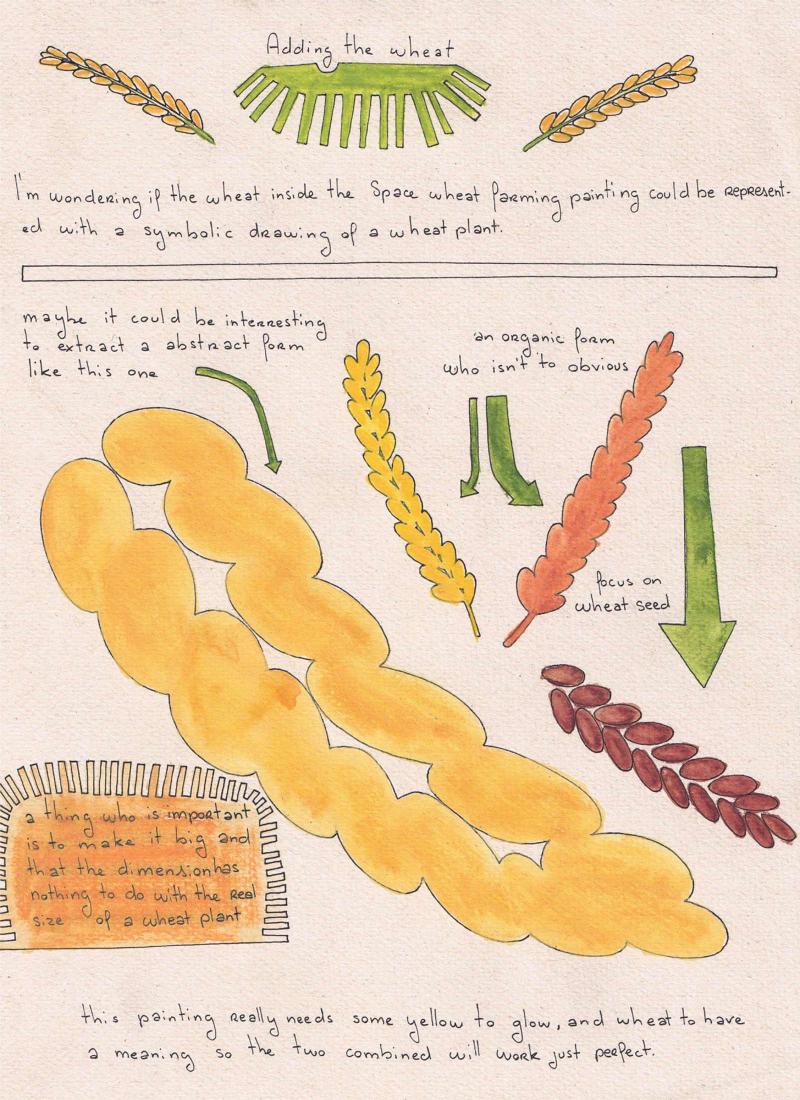 Adding the wheat
I'm wondering if the wheat inside the Space wheat farming painting could be represent-
ed with a symbolic drawing of a wheat plant.
maybe it could be interresting
to extract a abstract form
like this one
an organic form
who isn't to obvious
focus on
wheat seed
a thing who is important
is to make it big and
that the dimension has
nothing to do with the real
size of a wheat plant
this painting really needs some yellow to glow, and wheat to have
a meaning so the two combined will work just perfect.